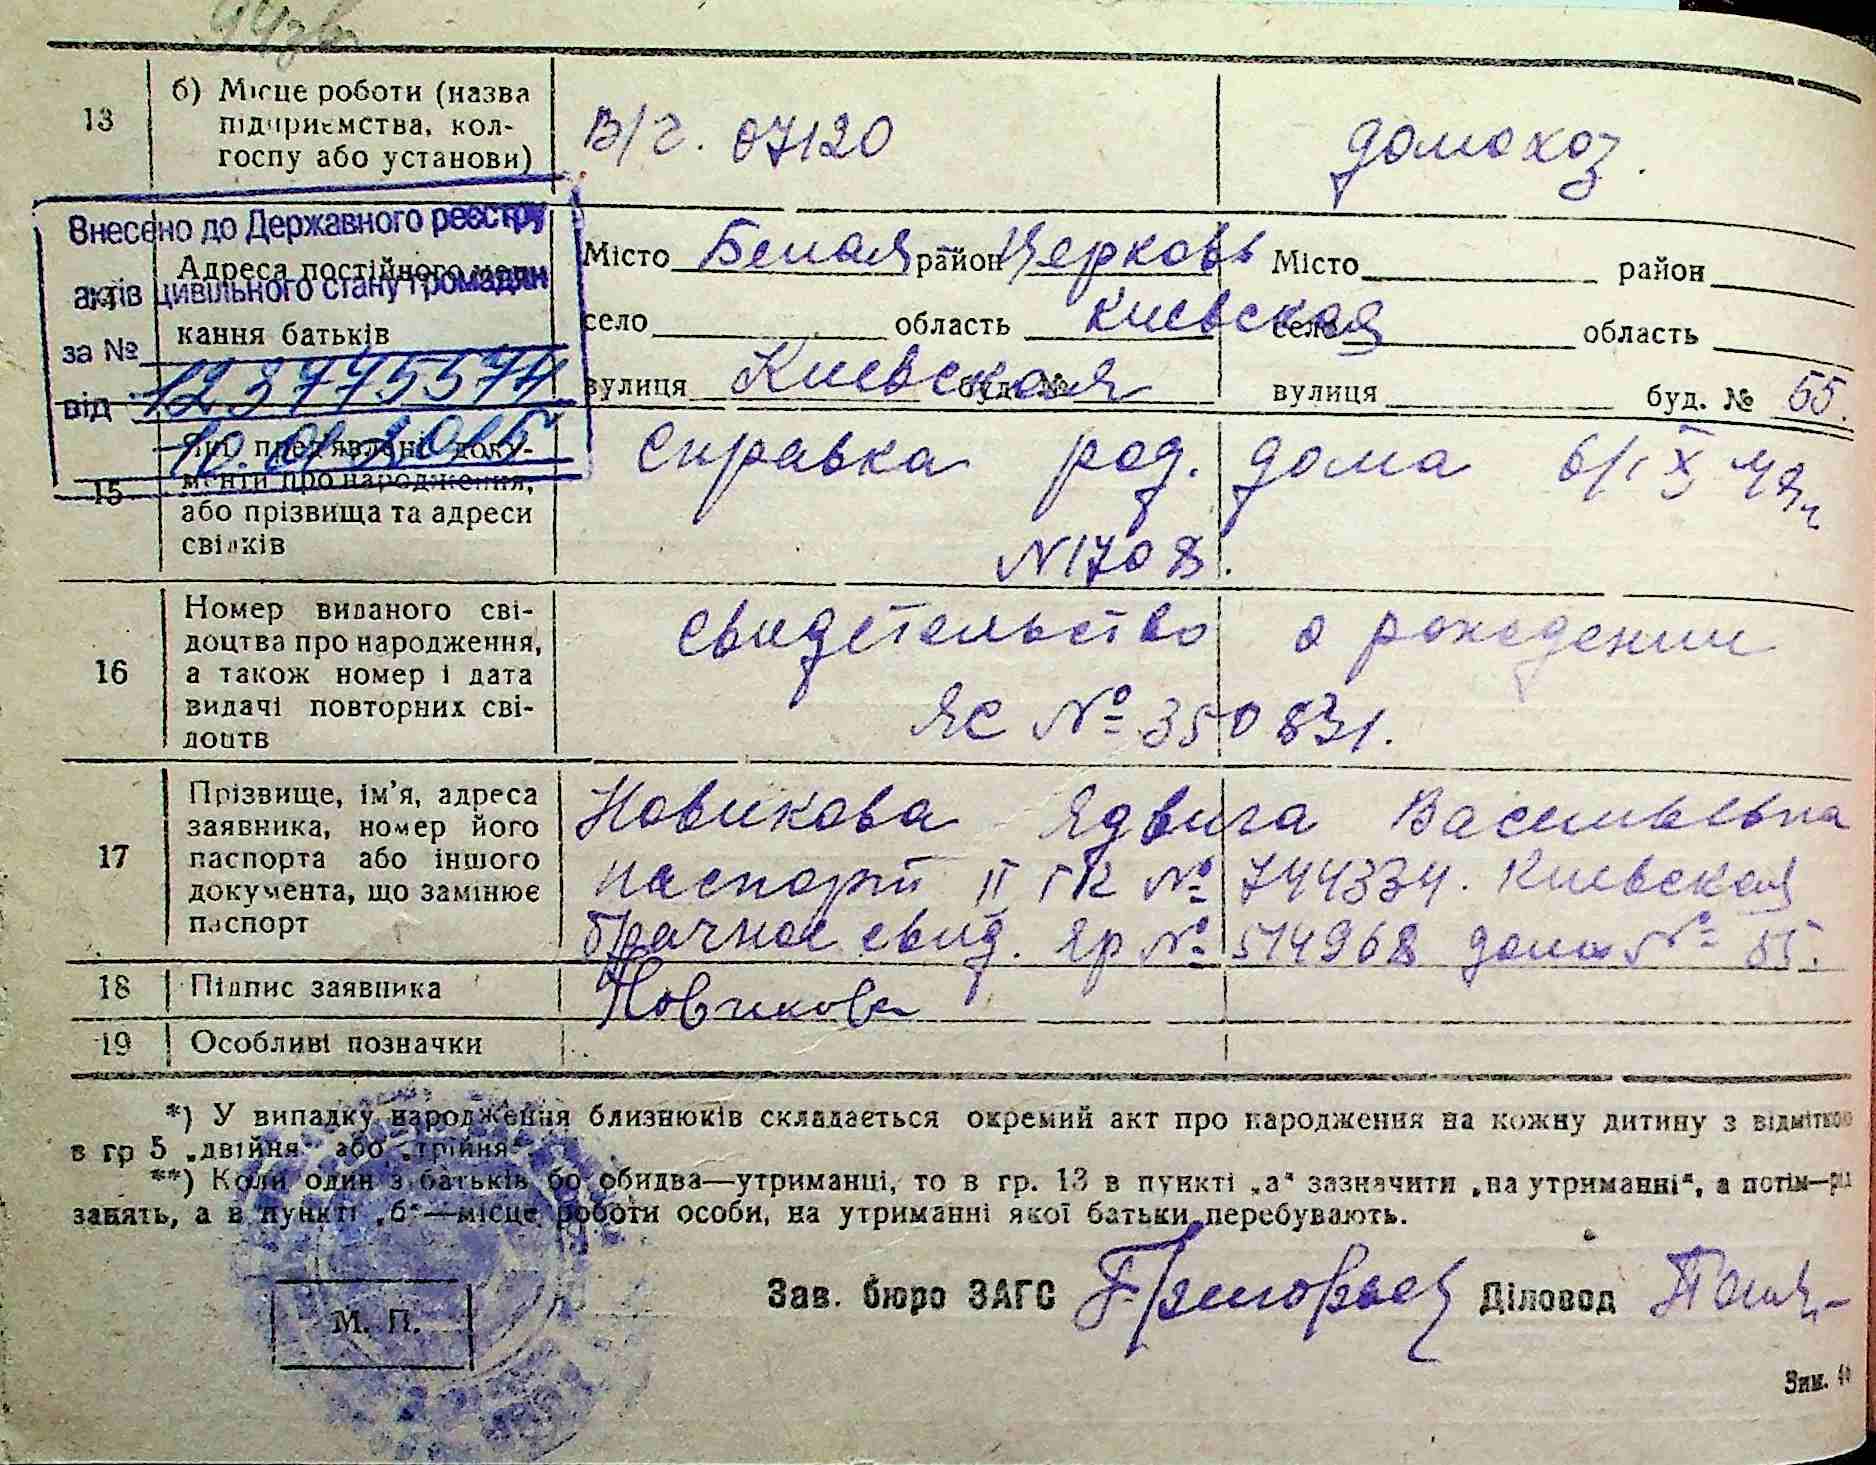 13
б) Місце роботи (назва
підприємства, кол-
госпу або установи)
В/г. 07120
домохоз.
Внесено до Державного реєстру
актів цивільного стану громадян
за № 12377557
від 10.01.2015
Адреса постійного
кання батьків
Місто Белая район Церковь
село область Киевская
вулиця Киевская буд. №
Місто район
село область
вулиця буд. № 55.
15
доку-
менти про народження,
або прізвища та адреси
свідків
Справка род. дома 6/IX
N1708.
16
Номер виданого сві-
доцтва про народження,
а також номер і дата
видачі повторних сві-
доцтв
Свидетельство о рождении
ЯС № 350831.
17
Прізвище, ім'я, адреса
заявника, номер його
паспорта або іншого
документа, що замінює
паспорт
Новикова Ядвига Васильевна
паспорт II ГК № 744334. Киевская
брачное свид. ЯР № 514968 дом № 55.
18
Підпис заявника
Новикова
19
Особливі позначки
*) У випадку народження близнюків складається окремий акт про народження на кожну дитину з відміткою
в гр 5 „двійня" або „трійня"
**) Коли один з батьків бо обидва—утриманці, то в гр. 13 в пункті „а" зазначити „на утриманні", а потім—рід
занять, а в пункті „б"—місце роботи особи, на утриманні якої батьки перебувають.
Зав. бюро ЗАГС
Діловод
М. П.